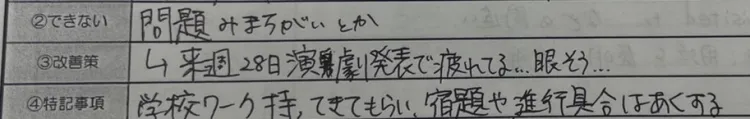 ②できない 問題みまちがいとか
③改善策 ↳来週28日演劇発表で疲れてる…眠そう…
④特記事項 学校ワーク持ってきてもらい、宿題や進行具合はあくする